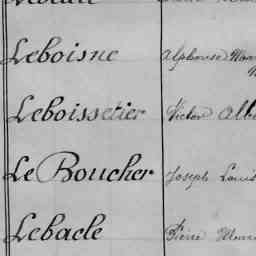 Leboisne Alphonse
Leboissetier Victor
Le Boucher Joseph Louis
Lebacle Pierre